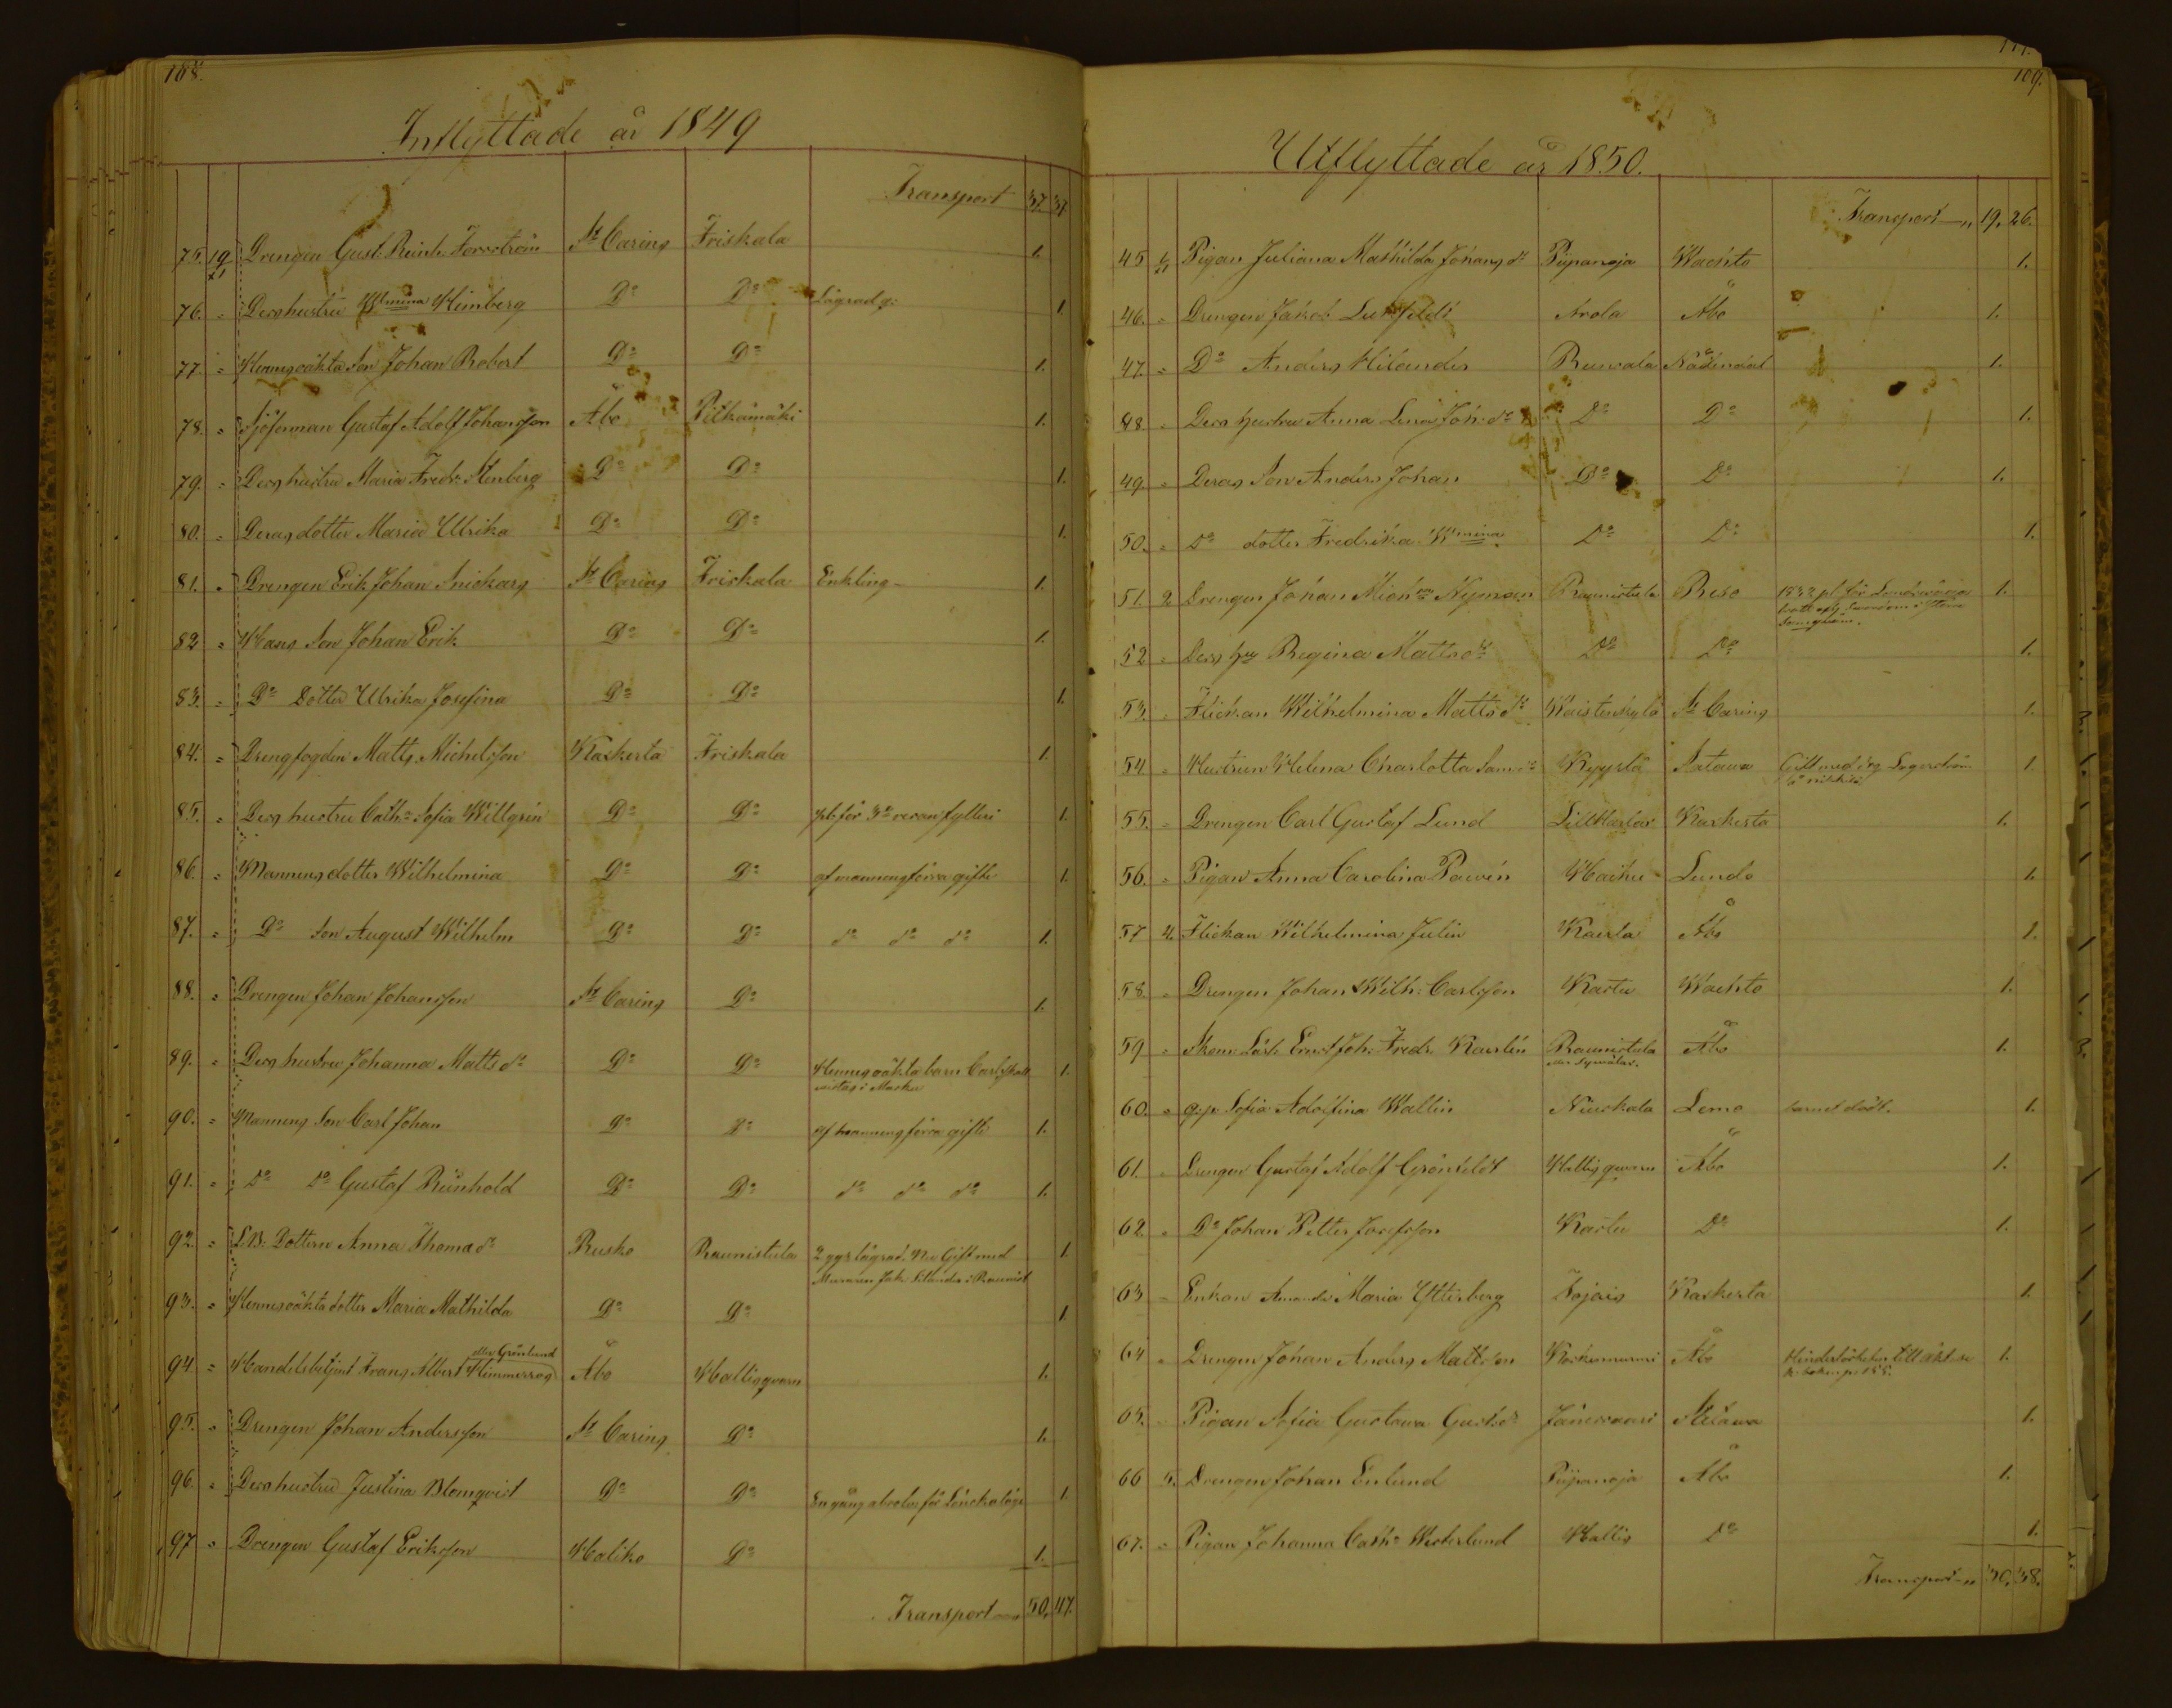 108.
Inflyttade år 1849
Transport 37. 37
75. 19/XI Drengen Gust: Reinh: Forsström St Carins Friskala 1.
76. " Dess hustru Wmina Heimberg Do Do Lägrad g: 1.
77. " Hennes oäkta Son Johan Robert Do Do 1.
78. " Sjöferman Gustaf Adolf Johansson Åbo Pitkämäki 1.
79. " Dess hustru Maria Fredr: Stenberg Do Do 1.
80. " Deras dotter Maria Ulrika Do Do 1.
81. " Drengen Erik Johan Snickars St Carins Friskala Enkling - 1.
82 " Hans Son Johan Erik Do Do 1.
83. " Do Dotter Ulrika Josefina Do Do 1.
84. " Drengfogden Matts Michelsson Kaskerta Friskala 1.
85. " Dess hustru Cath: Sofia Willgrén Do Do pl: för 3de resan fylleri 1.
86. " Mannens dotter Wilhelmina Do Do af mannens förra gifte 1.
87. " Do Son August Wilhelm Do Do do do do 1.
88. " Drengen Johan Johansson St Carins Do 1.
89. " Dess hustru Johanna Matts dr Do Do Hennes oäkta barn Carl
vistas i Masku 1.
90. " Mannens Son Carl Johan Do Do af mannens förra gifte 1.
91. " Do Do Gustaf Reinhold Do Do do do do 1.
92. " Dottern Anna Thomædr Rusko Raunistula 2 ggr lägrad. Nu Gift med 1.
Muraren Jak: Silander i Raunist
93. " Hennes oäkta dotter Maria Mathilda Do Do 1.
eller Grönlund
94 " Handelsbetjent Frans Albert Åbo Hallisqvarn 1.
95. " Drengen Johan Andersson St Carins Do 1.
96. " Dess hustru Justina Blomqvist Do Do En gång absolv: för Lönskaläge 1.
97 " Drengen Gustaf Eriksson Haliko Do 1.
Transport 50. 47.
109.
Utflyttade år 1850.
Transport 19. 26.
45 Pigan Juliana Mathilda Johans dr Piipanoja Wachto 1.
46. " Drengen Jakob Arola Åbo 1.
47. " Do Anders Hilander Ruwala Nådendal 1.
48. " Dess hustru Anna Lena Joh: dr Do Do 1.
49. " Deras Son Anders Johan Do Do 1.
50. " Do dotter Fredrika Wmina Do Do 1.
51. 2 Drengen Johan Mich:son Nyman Raunistula Reso 1832 pl för 1.
52 " Dess hu Regina Matts dr Do Do 1.
53. " Flickan Wilhelmina Matts dr Waistenkylä St Carins 1.
54. " Hustrun Helena Charlotta Sam: dr Kyystä Patawa Gift med 1.
55. " Drengen Carl Gustaf Lund Lill Kaskerta 1.
56. " Pigan Anna Carolina Pawén Haitu Lundo 1.
57 4. Flickan Wilhelmina Julin Kaerla Åbo 1.
58. " Drengen Johan Wilh: Carlsson Kastu Wachto 1.
59 " Skom: Lärl: Ernst Joh: Fredr: Karlén Raunistula Åbo 1.
60. " q:p: Sofia Adolfina Wallin Niuskala Lemo barnet dödt. 1.
61. " Drengen Gustaf Adolf Grönfeldt Hallis qwarn Åbo 1.
62. " Do Johan Petter Josefsson Kastu Do 1.
63 " Enkan Amanda Maria Ytterberg Kaskerta 1.
64 " Drengen Johan Anders Mattsson Koskennurmi Åbo Hinderlös 1.
65. " Pigan Sofia Gustawa Gust: dr Jänessaari 1.
66 5. Drengen Johan Enlund Piipanoja Åbo 1.
67. " Pigan Johanna Cath: Westerlund Hallis Do 1.
Transport 30. 38.